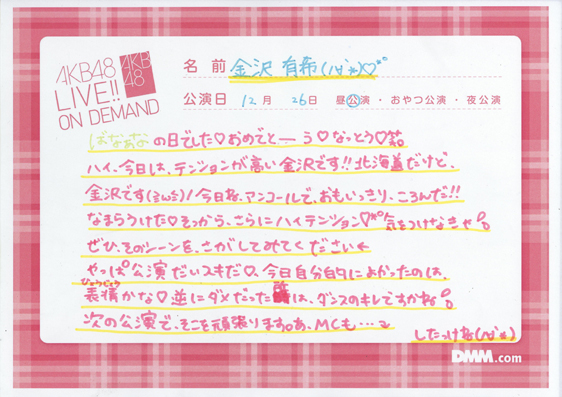 AKB48
LIVE!!
ON DEMAND
AKB
48
名前 金沢 有希(ハ˘*)♡*°
公演日 12月 26日 昼公演・おやつ公演・夜公演
ばなななの日でした♡おめでとーう♡なっとう♡笑
ハイ、今日は、テンションが高い金沢です!!北海道だけど、
金沢です(3ω3)!今日ね、アンコールで、おもいっきり、ころんだ!!
なまらうけた♡そっから、さらにハイテンション♡*° 気をつけなきゃ
ぜひ、そのシーンを、さがしてみてください←
やっぱ公演だいスキだ♡、今日自分的によかったのは、
ひょうじょう
表情かな♡逆にダメだったは、ダンスのキレですかね
次の公演で、そこを頑張ります。あ、MCも…
したっけね(ハ˘*)
DMM.com